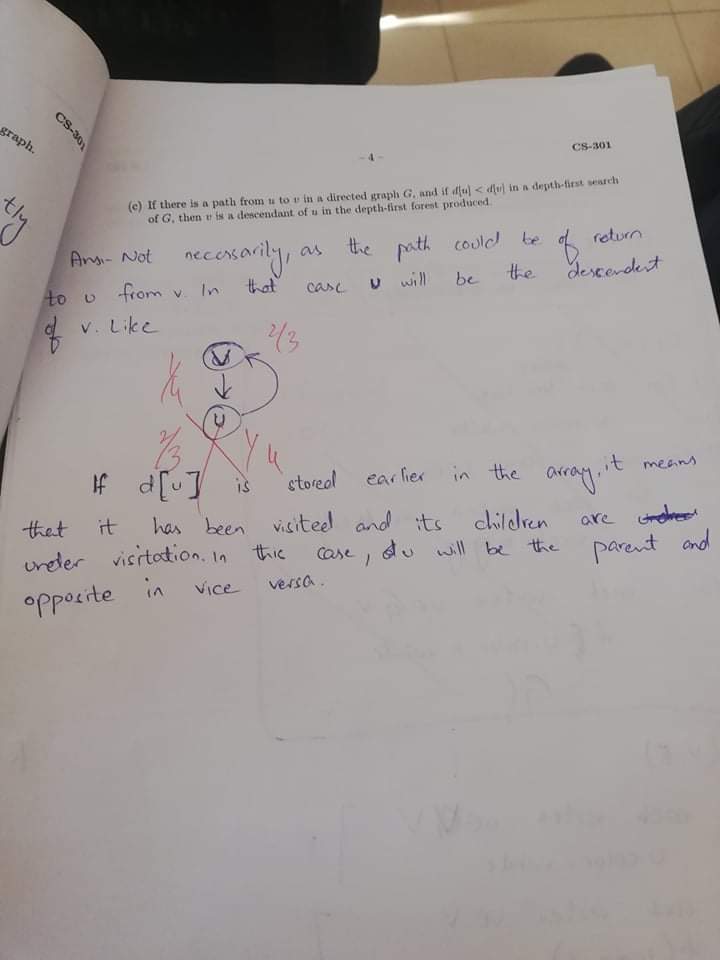 graph.
CS-301
t/y
- 4 -
CS-301
(c) If there is a path from u to v in a directed graph G, and if d[u] < d[v] in a depth-first search
of G, then v is a descendant of u in the depth-first forest produced.
Ans:- Not necessarily, as the path could be of return
to u from v. In that case u will be the descendent
of v. Like
2/3
V
1/4
U
2/3
1/4
If d[u] is stored earlier in the array, it means
that it has been visited and its children are
under visitation. In this case, u will be the parent and
opposite in vice versa.